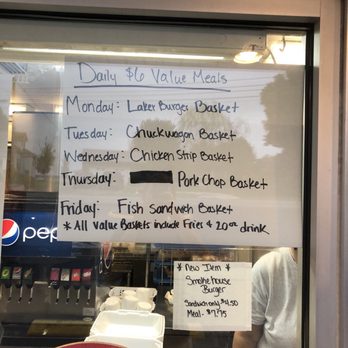 Daily $6 Value Meals
Monday: Laker Burger Basket
Tuesday: Chuckwagon Basket
Wednesday: Chicken Strip Basket
Thursday: Pork Chop Basket
Friday: Fish Sandwich Basket
* All Value Baskets include Fries & 20oz drink
pep
* New Item *
Smokehouse
Burger
Sandwich only $4.50
Meal - $7.75